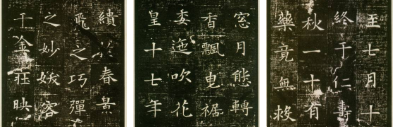 績於春景
飛之巧彈
之妙妖容
千金莊映
窓月態轉
香飄曳裾
委迤吹花
皇十七年
至七月十
終于仁壽
秋一十有
藥竟無救